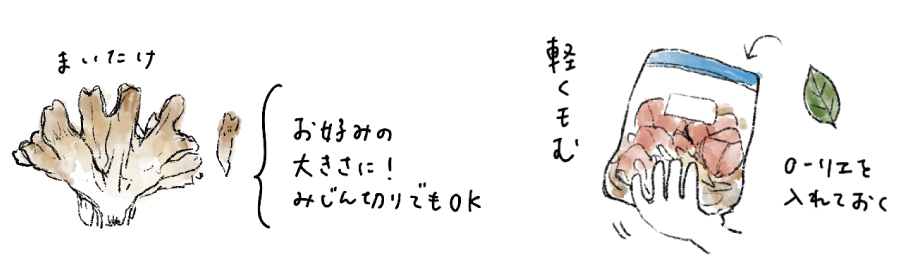 まいたけ
お好みの
大きさに！
みじん切りでもOK
軽くもむ
ローリエを
入れておく